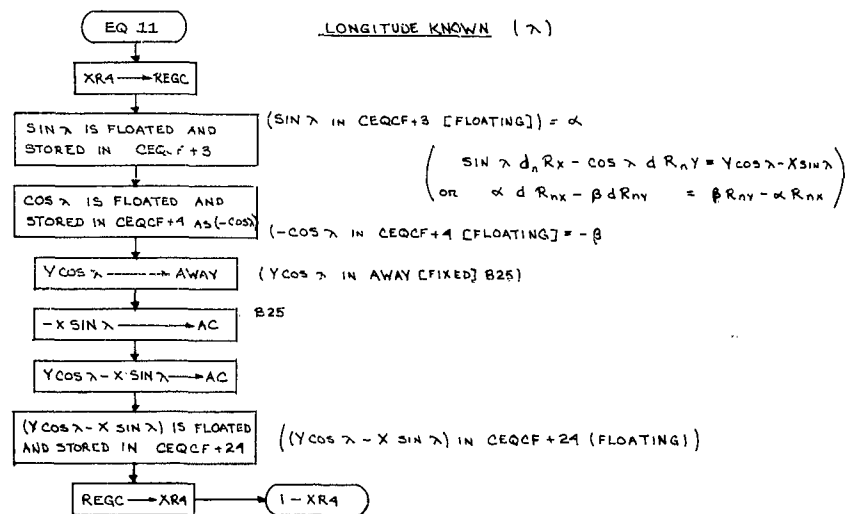 EQ 11
LONGITUDE KNOWN (λ)
XR4 → REGC
SIN λ IS FLOATED AND
STORED IN CEQCF+3
(SIN λ IN CEQCF+3 [FLOATING]) = α
(SIN λ dₙ Rx - COS λ d RₙY = YCOSλ-XSINλ)
OR α d Rnx - β dRny = β Rny - α Rnx
COS λ IS FLOATED AND
STORED IN CEQCF+4 AS (-COSλ)
(-COS λ IN CEQCF+4 [FLOATING] = -β
YCOS λ → AWAY
(YCOS λ IN AWAY [FIXED] B25)
-X SIN λ → AC
B25
YCOS λ - X SIN λ → AC
(Y COS λ - X SIN λ) IS FLOATED
AND STORED IN CEQCF+24
((YCOS λ - X SIN λ) IN CEQCF+24 (FLOATING))
REGC → XR4
1 - XR4